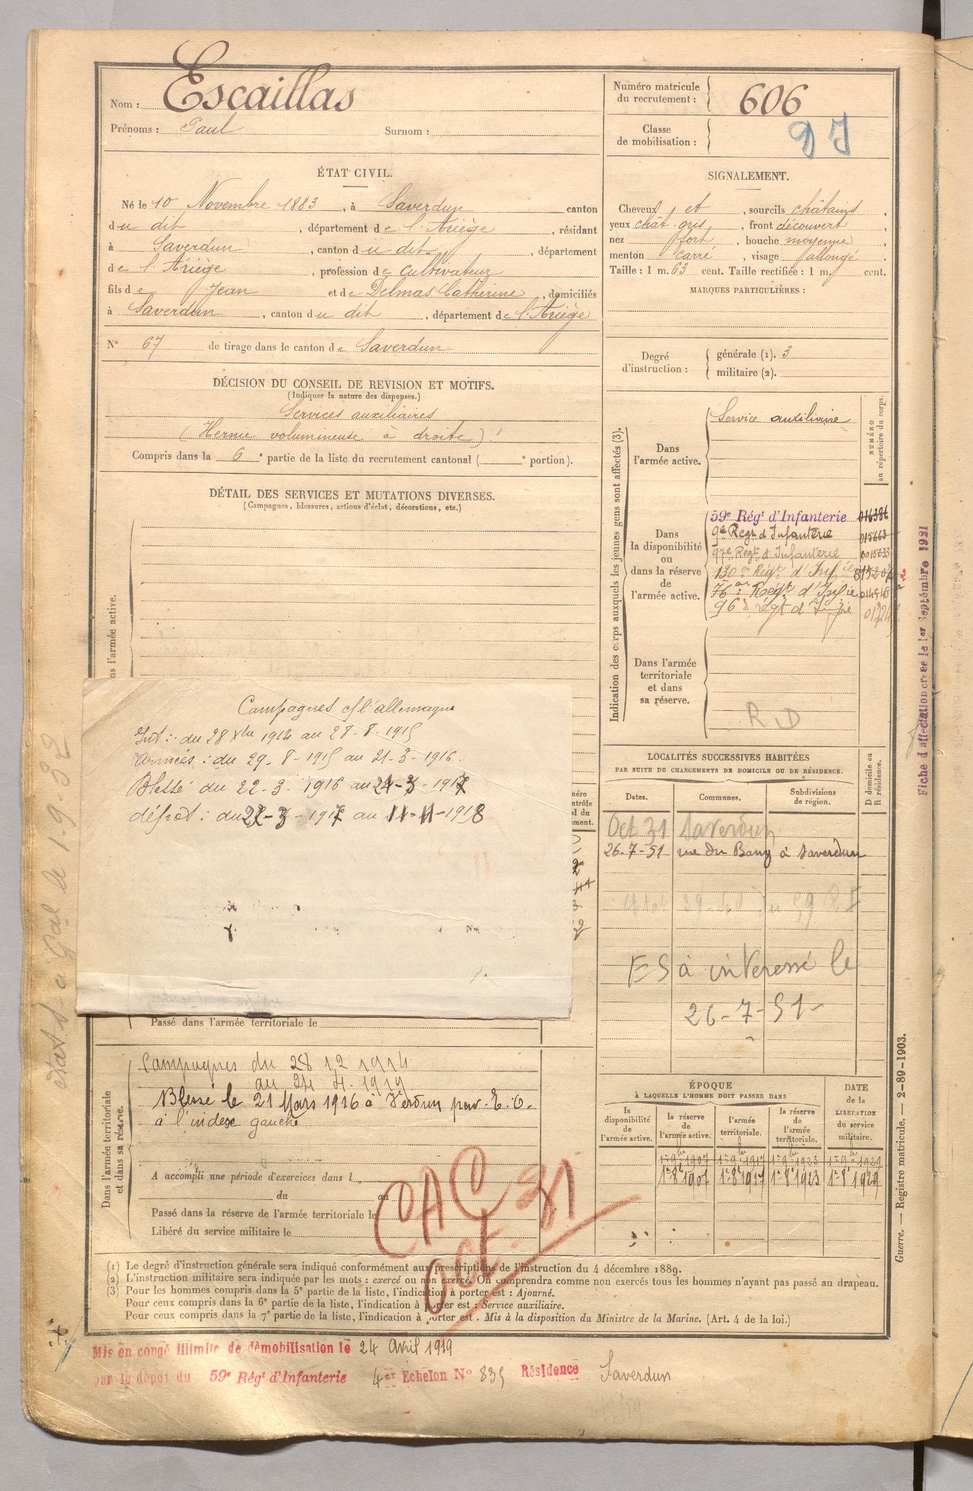 Nom : Escaillas
Prénoms : Paul Surnom :
Numéro matricule du recrutement : 606
Classe de mobilisation :
ÉTAT CIVIL.
Né le 10 Novembre 1883, à Saverdun canton
du dit, département de l'Ariège, résidant
à Saverdun, canton du dit, département
de l'Ariège, profession de cultivateur
fils de Jean et de Delmas Catherine, domiciliés
à Saverdun, canton du dit, département de l'Ariège
N° 67 de tirage dans le canton de Saverdun
SIGNALEMENT.
Cheveux et, sourcils châtains,
yeux chât. gris, front découvert,
nez fort, bouche moyenne,
menton carré, visage allongé.
Taille : 1 m. 63 cent. Taille rectifiée : 1 m. cent.
MARQUES PARTICULIÈRES :
Degré d'instruction : générale (1). 3
militaire (2).
DÉCISION DU CONSEIL DE REVISION ET MOTIFS.
(Indiquer la nature des dispenses.)
Services auxiliaires
(Hernie volumineuse à droite)
Compris dans la 6e partie de la liste du recrutement cantonal ( e portion).
DÉTAIL DES SERVICES ET MUTATIONS DIVERSES.
(Campagnes, blessures, actions d'éclat, décorations, etc.)
Indication des corps auxquels les jeunes gens sont affectés (3).
NUMÉRO au répertoire du corps.
Dans l'armée active.
Service auxiliaire
Dans la disponibilité ou dans la réserve de l'armée active.
59e Régt d'Infanterie
9e Régt d'Infanterie
97e Régt d'Infanterie
130e Régt d'Infie
76e Régt d'Infie
96e régt d'Infie
Dans l'armée territoriale et dans sa réserve.
R D
Fiche d'affectation créée le 1er Septembre 1921
Campagnes c/ l'allemagne
Int : du 28 Xbre 1914 au 28-8-1915
Armées : du 29-8-1915 au 21-3-1916.
Blessé du 22-3-1916 au 21-3-1917
dépot : du 22-3-1917 au 11-11-1918
LOCALITÉS SUCCESSIVES HABITÉES
PAR SUITE DE CHANGEMENTS DE DOMICILE OU DE RÉSIDENCE.
Dates. Communes. Subdivisions de région. D domicile ou R résidence.
Oct 31 Saverdun
26-7-51 rue du Bariy à Saverdun
ES à intéressé le
26-7-51
Passé dans l'armée territoriale le
Dans l'armée territoriale et dans sa réserve.
Campagnes du 28 12 1914
au 24 4. 1919
Blessé le 21 Mars 1916 à Verdun par E.O.
à l'index gauche
A accompli une période d'exercices dans l
du au
Passé dans la réserve de l'armée territoriale le
Libéré du service militaire le
CAC 81
oct.
ÉPOQUE
À LAQUELLE L'HOMME DOIT PASSER DANS
DATE de la LIBÉRATION du service militaire.
la disponibilité de l'armée active. la réserve de l'armée active. l'armée territoriale. la réserve de l'armée territoriale.
1er 8bre 1907 1er 8bre 1917 1er 8bre 1923 1er 8bre 1929
Guerre. — Registre matricule. — 2-89-1903.
(1) Le degré d'instruction générale sera indiqué conformément aux prescriptions de l'instruction du 4 décembre 1889.
(2) L'instruction militaire sera indiquée par les mots : exercé ou non exercé. On comprendra comme non exercés tous les hommes n'ayant pas passé au drapeau.
(3) Pour les hommes compris dans la 5e partie de la liste, l'indication à porter est : Ajourné.
Pour ceux compris dans la 6e partie de la liste, l'indication à porter est : Service auxiliaire.
Pour ceux compris dans la 7e partie de la liste, l'indication à porter est : Mis à la disposition du Ministre de la Marine. (Art. 4 de la loi.)
Mis en congé illimité de démobilisation le 24 Avril 1919
par le dépôt du 59e Régt d'Infanterie 4e Echelon N° 835 Résidence Saverdun